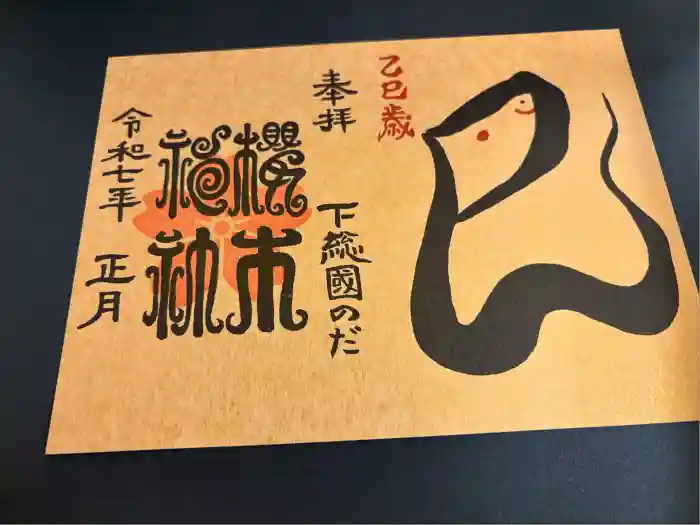 乙巳歳
奉拝
下総國のだ
櫻木
神社
令和七年
正月